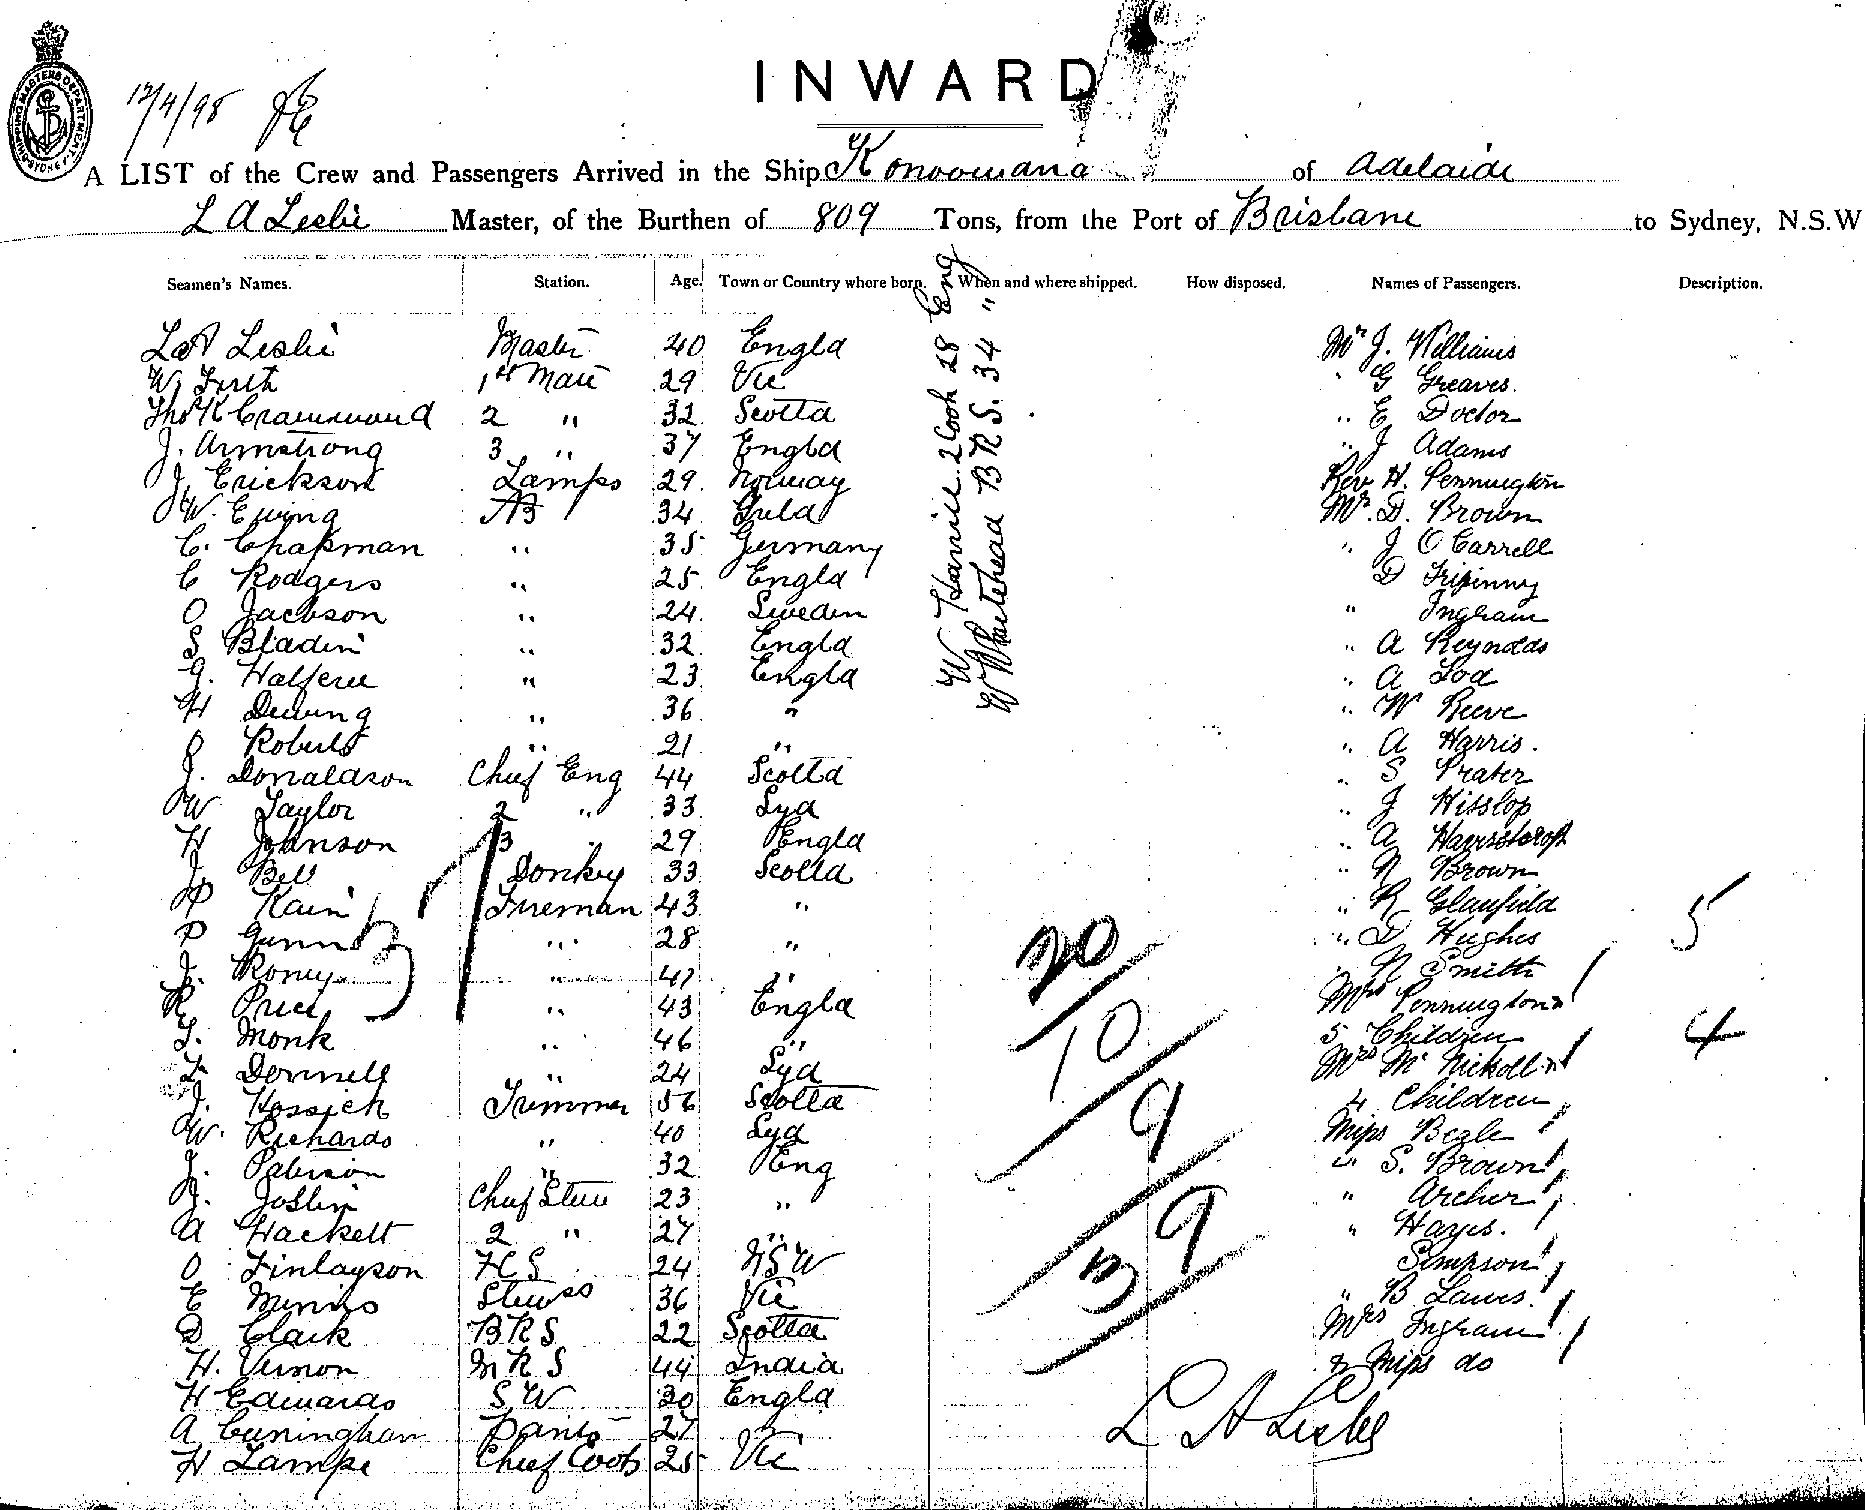 INWARD
12/4/98
SHIPPING MASTERS DEPARTMENT SYDNEY
A LIST of the Crew and Passengers Arrived in the Ship Konoowana of Adelaide
L A Leslie Master, of the Burthen of 809 Tons, from the Port of Brisbane to Sydney, N.S.W
Seamen's Names. Station. Age. Town or Country where born. When and where shipped. How disposed. Names of Passengers. Description.
L A Leslie Master 40 Engld Mr J. Williams
W Firth 1st Mate 29 Vic " G Greaves.
Thos K Crammond 2 " 32 Scotld " E Doctor
J. Armstrong 3 " 37 Engld " J Adams
J. Erickson Lamps 29 Norway Rev H. Pennington
W. Ewing AB 34 Ireld Mr. D. Brown
C. Chapman " 35 Germany " J O Carrell
C Rodgers " 25 Engld D
O Jackson " 24 Sweden " Ingram
S Bladin " 32 Engld " A Reynolds
G. " 23 Engld " A
H " 36 " " W Reeve
Roberts " 21 " " A Harris.
J. Donaldson Chief Eng 44 Scotld " S Prater
W Taylor 2 " 33 Syd " J Hisslop
H Johnson 3 " 29 Engld " A
J. Bell Donkey 33 Scotld " N Brown
P Kain Fireman 43 " " R Glanfield
P Gunn " 28 " " D Hughes 5
J. Romy " 41 " N Smith
R. Price " 43 Engld Mrs Pennington &
T. Monk " 46 " 5 Children 4
Donnell " 24 Syd Mrs Mc Nickoll &
J. Hossick Trimmer 56 Scotld 4 Children
W. Richards " 40 Syd Miss Begle
J. Paterson " 32 Eng " S. Brown
J. Joslin Chief Stew 23 " " Archer
A Hackett 2 " 27 " " Hayes.
O Finlayson FCS 24 NSW Simpson
E Minns Stewss 36 Vic " B Laws.
D Clark BRS 22 Scotld Mrs Ingram
H. Vernon MRS 44 India & Miss do
H Edwards SW 30 Engld
A Cuningham Pants 27
H Lampe Chief Cook 25 Vic
W Hamill 2 Cook 28 Eng
W Whitehead BRS. 34 "
20
10
9
9
3
L A Leslie